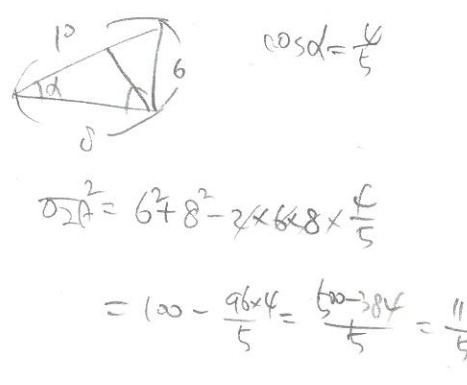 10
cosα = 4/5
α
6
8
O₂A² = 6² + 8² - 2×6×8 × 4/5
= 100 - 96×4/5 = 500-384/5 = 11/5